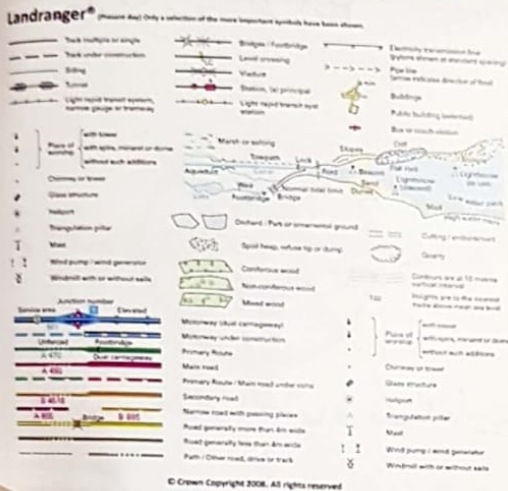 Landranger® (Present day) Only a selection of the more important symbols have been shown.
Track multiple or single
Track under construction
Siding
Tunnel
Light rapid transit system, narrow gauge or tramway
Bridges / Footbridge
Level crossing
Viaduct
Station, (a) principal
Light rapid transit system station
Electricity transmission line
(pylons shown at standard spacing)
Pipe line
(arrow indicates direction of flow)
Buildings
Public building (selected)
Bus or coach station
Place of worship
with tower
with spire, minaret or dome
without such additions
Chimney or tower
Glass structure
Heliport
Triangulation pillar
Mast
Wind pump / wind generator
Windmill with or without sails
Marsh or salting
Towpath
Lock
Slopes
Cliff
Aqueduct
Canal
Ford
Beacon
Flat rock
Lighthouse (disused)
Lighthouse (in use)
Lake
Weir
Footbridge
Bridge
Normal tidal limit
Sand
Dunes
Mud
Low water mark
High water mark
Orchard / Park or ornamental ground
Spoil heap, refuse tip or dump
Coniferous wood
Non-coniferous wood
Mixed wood
Cutting / embankment
Quarry
Contours are at 10 metres vertical interval
Heights are to the nearest metre above mean sea level
Junction number
Service area
Elevated
Unfenced
Footbridge
A 470
Dual carriageway
Bridge
Motorway (dual carriageway)
Motorway under construction
Primary Route
Main road
Primary Route / Main road under cons
Secondary road
Narrow road with passing places
Road generally more than 4m wide
Road generally less than 4m wide
Path / Other road, drive or track
Place of worship
with tower
with spire, minaret or dome
without such additions
Chimney or tower
Glass structure
Heliport
Triangulation pillar
Mast
Wind pump / wind generator
Windmill with or without sails
© Crown Copyright 2008. All rights reserved